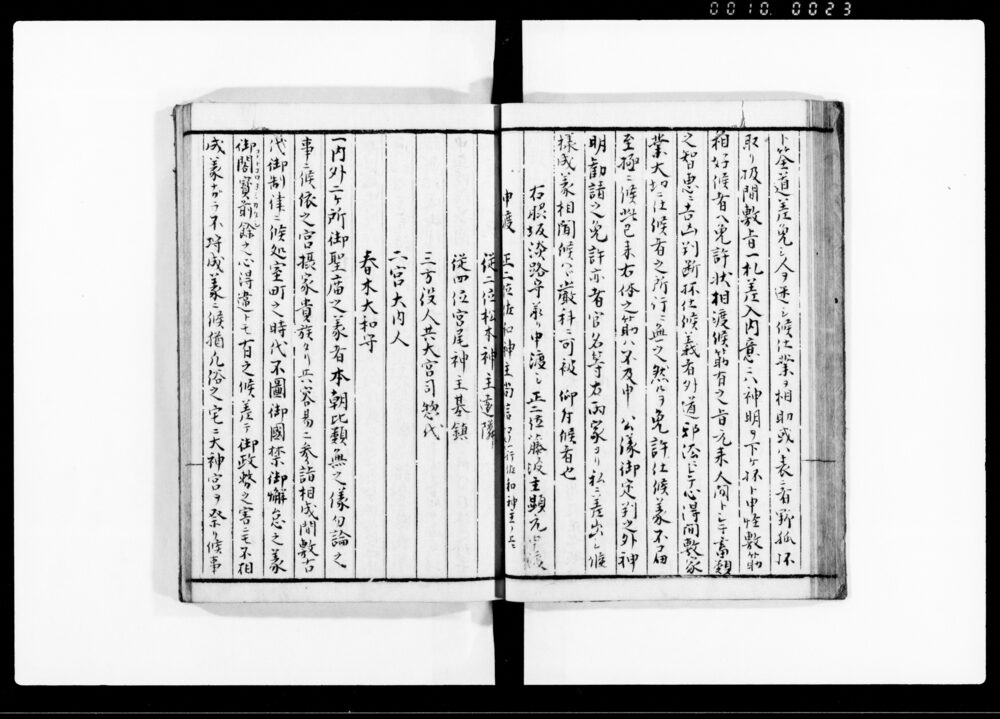 0010. 0023
ト筮道差免シ人ヲ迷シ候仕業ヲ相助或ハ表ニ者野狐抔
取リ扱間敷旨一札差入内意ニハ神明ヲ下ケ抔ト申怪敷筋
相好候者ヘ免許状相渡候筋有之旨元来人間トシテ畜類
之智恵ニ吉凶判断抔仕候義者外道邪法ニテ心得間敷家
業大切ニ仕候者之所行ニ無之然ルヲ免許仕候義不届
至極ニ候然已来右体之筋ハ不及申 公儀御定判之外神
明勧請之免許亦者官名等右両家ヨリ私ニ差出シ候
様成義相聞候ハヽ厳科ニ可被 仰付候者也
右 坂淡路守 申渡シ正二位藤波主 
申渡 正二位 神主
従二位松木神主
従四位宮尾神主基鎮
三方役人共大宮司惣代
二宮大内人
春木大和守
一内外二ヶ所御聖廟之義者本朝比類無之儀勿論之
事ニ候依之宮摂家貴族タリ共容易ニ参詣相成間敷古
代御制律ニ候処室町之時代不図御国禁御懈怠之義
御 余之心得違トモ有之候差テ御政務之害ニモ不相
成義ナカラ不埒成義ニ候猶凡俗之宅ニ大神宮ヲ祭リ候事